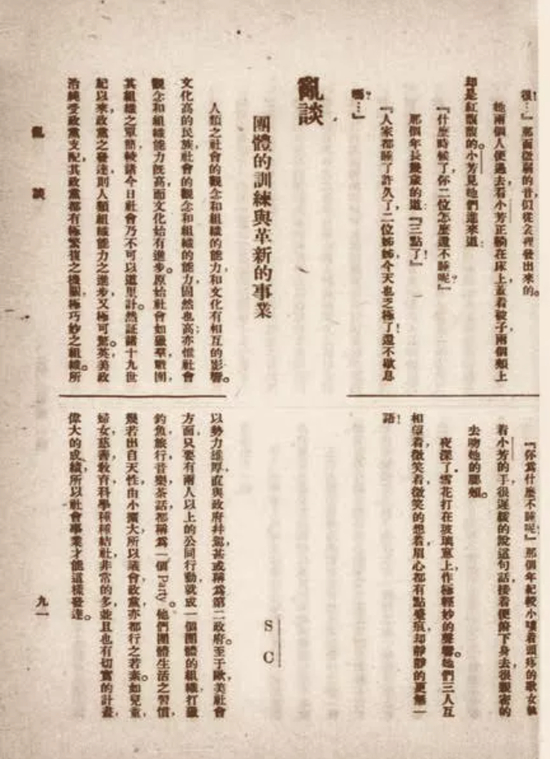 很！』那面微弱的音似從衾裡發出來的。
她兩個人便過去看小芳正躺在床上蓋着被子兩個頰上
却是紅馥馥的小芳見她們進來道
『什麼時候了你二位怎麼還不睡呢？』
那個年長幾歲的道『三點了！』
『人家都睡了許久了二位姊姊今天也乏極了！還不歇息
嗎？…』
『你爲什麼不睡呢？』那個年紀較小嚷着頭疼的歌女執
着小芳的手很遲緩的說這句話接着便俯下身去很親密的
去吻她的腮頰。
夜深了雪花打在玻璃窗上作極輕妙的聲響。她們三人互
相望着微笑着微笑的想着眉心都有點蹙痕却靜靜的更無一
語！
亂談
團體的訓練與革新的事業
S C
人類之社會的觀念和組織的能力和文化有相互的影響。
文化高的民族社會的觀念和組織的能力固然也高亦惟社會
觀念和組織能力旣高而文化始有進步。原始社會如獵羣戰團，
其組織之單簡較諸今日社會乃不可以道里計。然証諸十九世
紀以來，政黨之發達則人類組織能力之進步又極可驚。英美政
治純受政黨支配，其政黨都有極繁複之機關極巧妙之組織，所
以勢力雄厚直與政府幷駕甚或稱爲第二政府。至于歐美社會
方面只要有兩人以上的公同行動就成一個團體的組織，打獵，
釣魚，旅行，音樂，茶話都稱爲一個Party。他們團體生活之習慣，
幾若出自天性由小擴大所以議會政黨亦都行之若素。如兒童，
婦女，慈善，敎育，科學種種結社非常的多，並且也有切實的計畫，
偉大的成績所以社會事業才能這樣發達。
亂談
九一